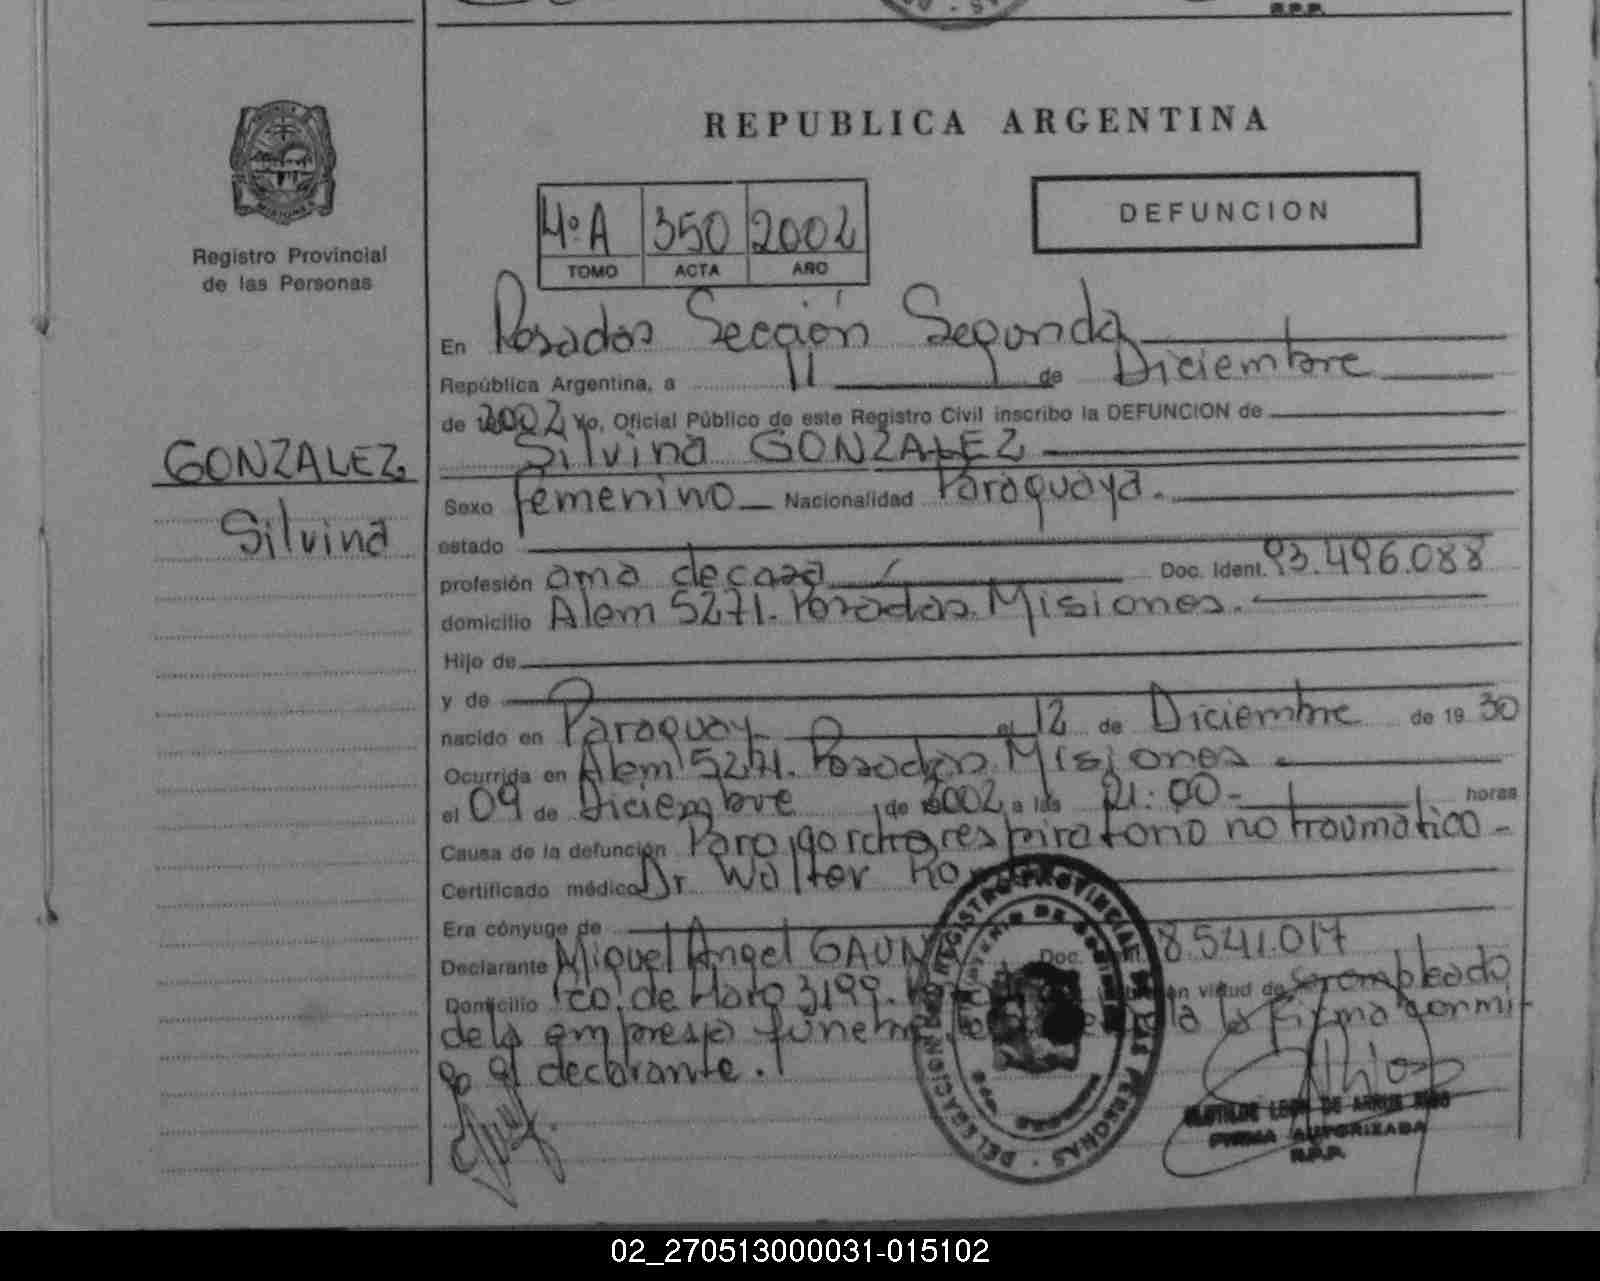 R.P.P.
REPUBLICA ARGENTINA
DEFUNCION
4º A 350 2002
TOMO ACTA AÑO
Registro Provincial
de las Personas
En Posadas Sección Segunda
República Argentina, a 11 de Diciembre
de 2002 Yo, Oficial Público de este Registro Civil inscribo la DEFUNCION de
Silvina GONZALEZ
GONZALEZ
Silvina
Sexo femenino Nacionalidad Paraguaya.
estado
profesión ama de casa Doc. Ident. 93.496.088
domicilio Alem 5271. Posadas. Misiones.
Hijo de
y de
nacido en Paraguay el 12 de Diciembre de 1930
Ocurrida en Alem 5271. Posadas. Misiones
el 09 de Diciembre de 2002 a las 21:00- horas
Causa de la defunción Paro cardiorespiratorio no traumático-
Certificado médico Dr Walter
Era cónyuge de
Declarante Miguel Angel Doc. 8.541.017
Domicilio Fco. de Haro 3199. en virtud de ser empleado
de la empresa la firma conmi-
go el declarante.
REGISTRO PROVINCIAL DE LAS PERSONAS
MINISTERIO DE GOBIERNO
MISIONES
DELEGACION
CLOTILDE LEON DE ARRUS RIOS
FIRMA AUTORIZADA
R.P.P.
02_270513000031-015102